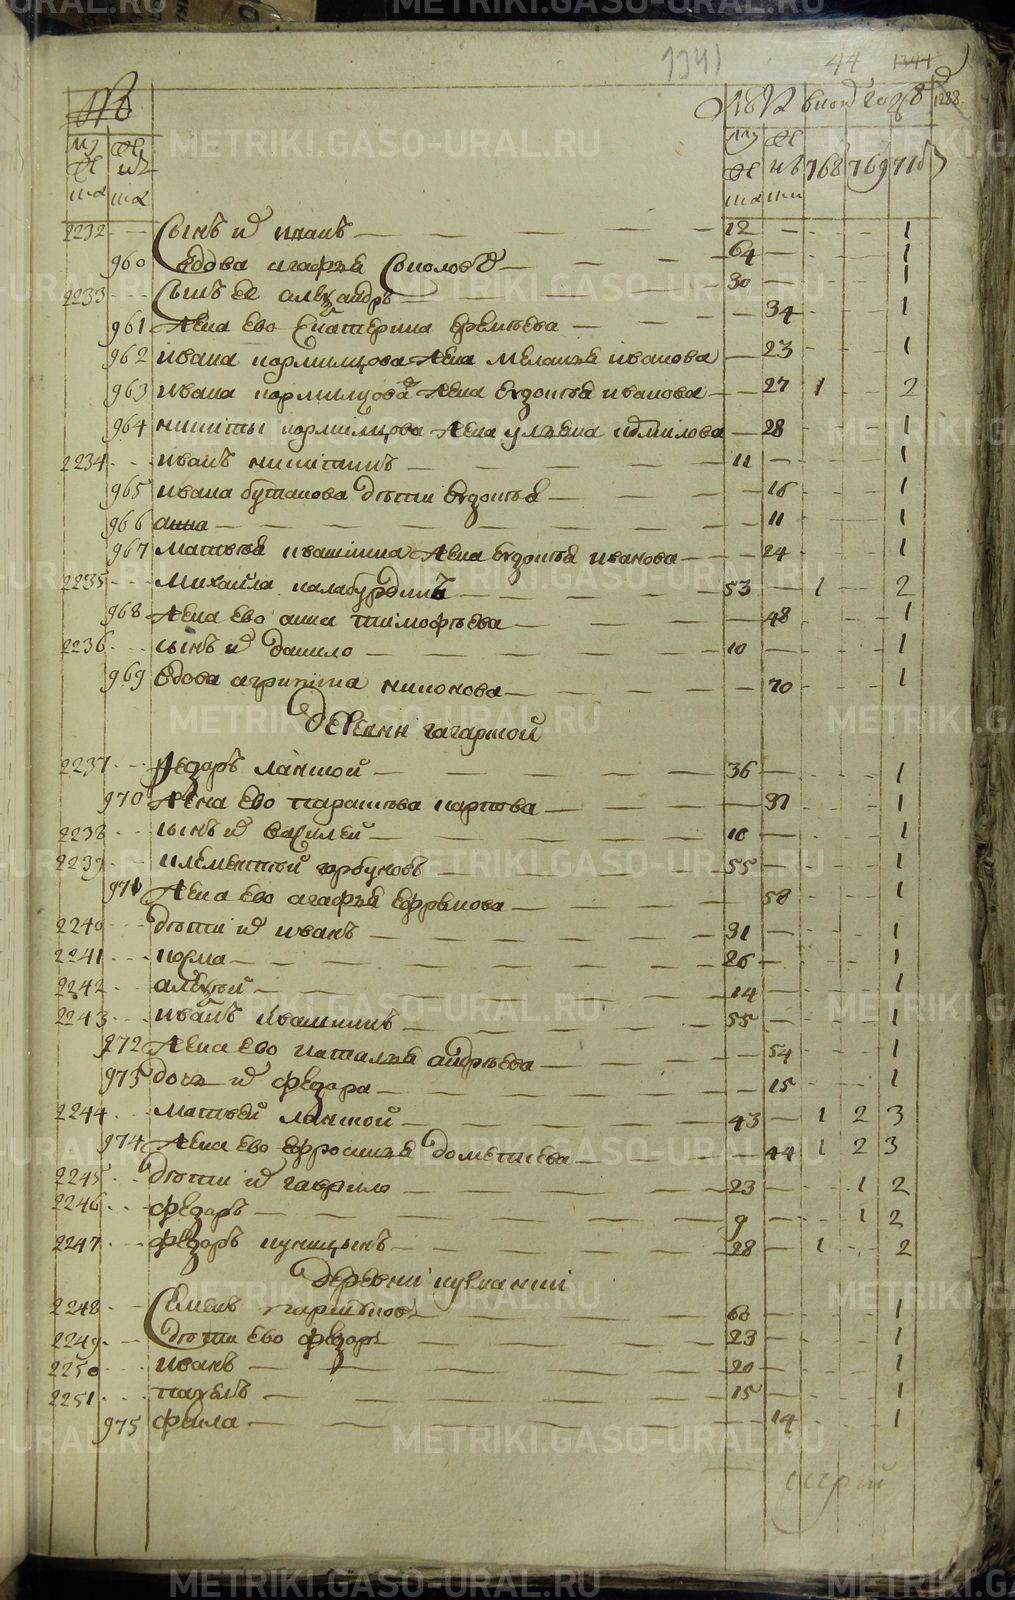 1341 44 1341
№ лѣта въ которого 1288
му же му же
же нс же нъ 768 769 770
ска ска ска ски
2232 Сынъ их иванъ 12 1
960 Вдова агафья Соколова 64 1
2233 Сынъ ее алеѯандръ 30 1
961 Жена ево Екатерина еремѣева 34 1
962 ивана кормилцова жена меланья иванова 23 1
963 ивана кормилцова жена евдокея иванова 27 1 2
964 никиты кормилцова жена ульяна данилова 28 1
2234 иванъ никитинъ 11 1
965 ивана бутакова дѣти евдокея 16 1
966 анна 11 1
967 матвея ивашкина жена евдокея иванова 24 1
2235 михайла калабурдинъ 53 1 2
968 жена ево анна тимофѣева 48 1
2236 сынъ их данило 10 1
969 вдова агрипина никонова 70 1
деревни гагарской
2237 федоръ лацкой 36 1
970 жена ево парасковья карпова 37 1
2238 сынъ их василей 10 1
2239 клементей горбуновъ 55 1
971 жена ево агафья ефремова 58 1
2240 дѣти их иванъ 31 1
2241 козма 26 1
2242 алеѯей 14 1
2243 иванъ ивашкинъ 55 1
972 жена ево наталья андрѣева 54 1
973 дочь их федора 15 1
2244 матвей лацкой 43 1 2 3
974 жена ево ефросинья дометиева 44 1 2 3
2245 дѣти их гаврило 23 1 2
2246 федоръ 9 1 2
2247 федоръ кунщынъ 28 1 2
деревни
2248 Семенъ 60 1
2249 дѣти ево федоръ 23 1
2250 иванъ 20 1
2251 павелъ 15 1
975 фекла 14 1
METRIKI.GASO-URAL.RU